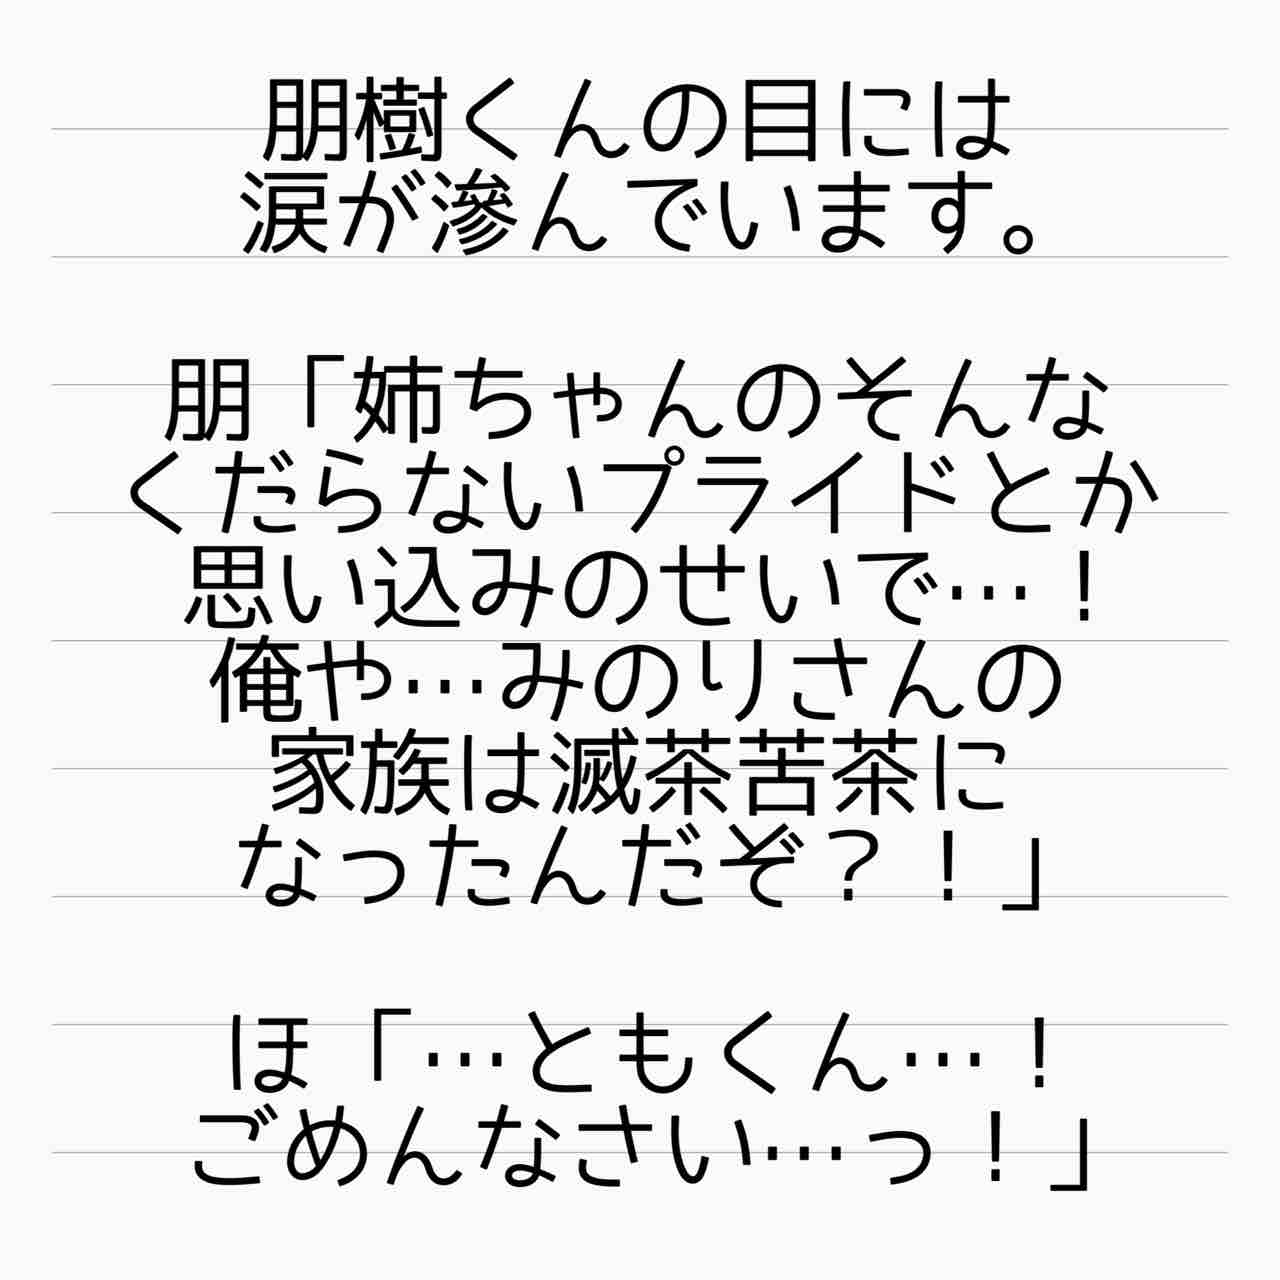 朋樹くんの目には
涙が滲んでいます。
朋「姉ちゃんのそんな
くだらないプライドとか
思い込みのせいで…！
俺や…みのりさんの
家族は滅茶苦茶に
なったんだぞ？！」
ほ「…ともくん…！
ごめんなさい…っ！」